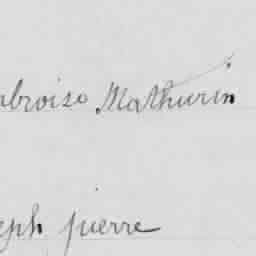 abroise Mathurin
eph pierre